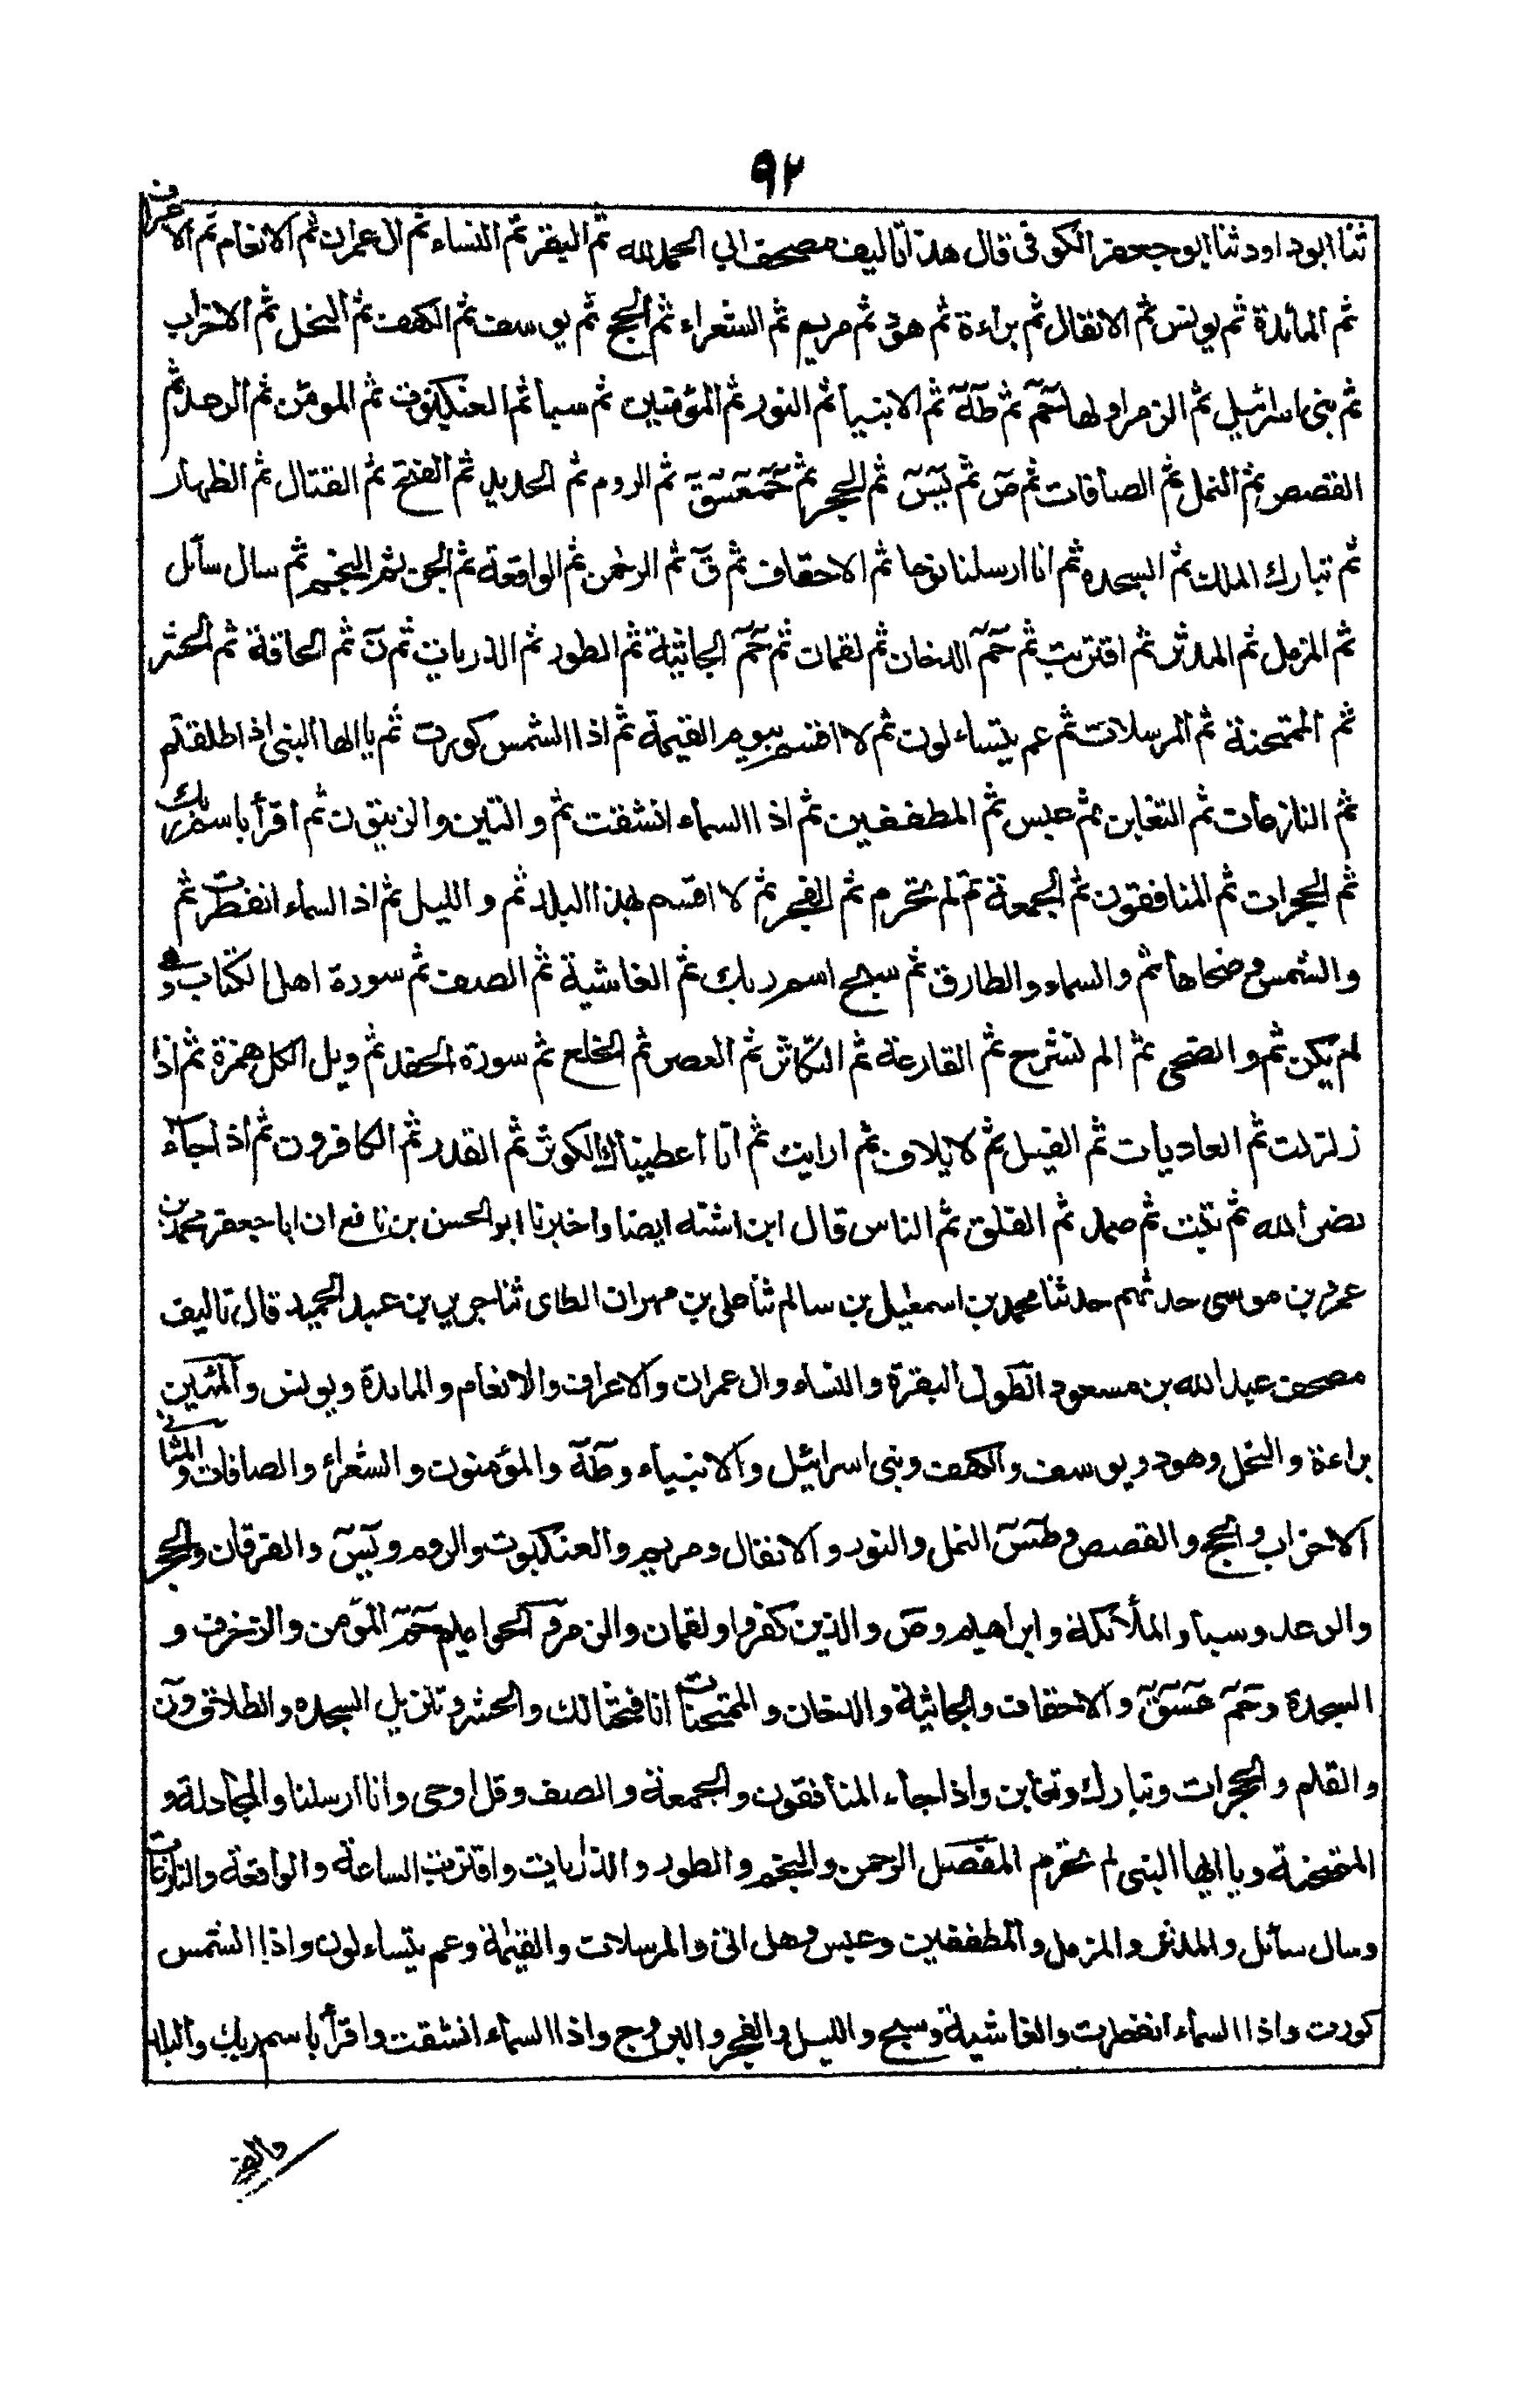 ٩٢
ثنا ابوداود ثنا ابو جعفر الكوفى قال هذا تاليف مصحف ابي الحمد لله ثم البقر ثم النساء ثم ال عمران ثم الانعام ثم الاعراف
ثم المائدة ثم يونس ثم الانفال ثم براءة ثم هود ثم مريم ثم الشعراء ثم الحج ثم يوسف ثم الكهف ثم النحل ثم الاحزاب
ثم بنى اسرائيل ثم الزمر اولها حم ثم طه ثم الانبيا ثم النور ثم المؤمنين ثم سبا ثم العنكبوت ثم المومن ثم الرعد ثم
القصص ثم النمل ثم الصافات ثم ص ثم يس ثم الحجر ثم حمعسق ثم الروم ثم الحديد ثم الفتح ثم القتال ثم الظهار
ثم تبارك الملك ثم السجدة ثم انا ارسلنا نوحا ثم الاحقاف ثم ق ثم الرحمن ثم الواقعة ثم الجن ثم النجم ثم سال سائل
ثم المزمل ثم المدثر ثم اقتربت ثم حم الدخان ثم لقمان ثم حم الجاثية ثم الطور ثم الذريات ثم ن ثم الحاقة ثم الحشر
ثم الممتحنة ثم المرسلات ثم عم يتساءلون ثم لا اقسم بيوم القيمة ثم اذا الشمس كورت ثم يا ايها النبى اذا طلقتم
ثم النازعات ثم التغابن ثم عبس ثم المطففين ثم اذا السماء انشقت ثم والتين والزيتون ثم اقرأ باسم ربك
ثم الحجرات ثم المنافقون ثم الجمعة ثم لم تحرم ثم الفجر ثم لا اقسم بهذا البلد ثم والليل ثم اذا السماء انفطرت ثم
والشمس وضحاها ثم والسماء والطارق ثم سبح اسم ربك ثم الغاشية ثم الصف ثم سورة اهل الكتاب وهى
لم يكن ثم والضحى ثم الم نشرح ثم القارعة ثم التكاثر ثم العصر ثم الخلع ثم سورة الحفد ثم ويل لكل همزة ثم اذا
زلزلت ثم العاديات ثم الفيل ثم لايلاف ثم ارايت ثم انا اعطيناك الكوثر ثم القدر ثم الكافرون ثم اذا جاء
نصر الله ثم تبت ثم صمد ثم الفلق ثم الناس قال ابن اشته ايضا واخبرنا ابو الحسن بن نافع ان ابا جعفر محمد بن
عمرو بن موسى حدثهم حدثنا محمد بن اسمعيل بن سالم ثنا على بن مهران الطاى ثنا جرير بن عبد الحميد قال تاليف
مصحف عبد الله بن مسعود الطول البقرة والنساء وال عمران والاعراف والانعام والمائدة ويونس والمئين
براءة والنحل وهود ويوسف والكهف وبنى اسرائيل والانبياء وطه والمؤمنون والشعراء والصافات والمثانى
الاحزاب والحج والقصص وطس النمل والنور والانفال ومريم والعنكبوت والروم ويس والفرقان والحجر
والرعد وسبا والملائكة وابراهيم وص والذين كفروا ولقمان والزمر والحواميم حم المؤمن والزخرف و
السجدة وحم عسق والاحقاف والجاثية والدخان والممتحنات انا فتحنا لك والحشر وتنزيل السجده والطلاق ون
والقلم والحجرات وتبارك وتغابن واذا جاء المنافقون والجمعة والصف وقل اوحى وانا ارسلنا والمجادلة و
الممتحنة ويا ايها النبى لم تحرم المفصل الرحمن والنجم والطور والذاريات واقتربت الساعة والواقعة والنازعات
وسال سائل والمدثر والمزمل والمطففين وعبس وهل اتى والمرسلات والقيمة وعم يتساءلون واذا الشمس
كورت واذا السماء انفطرت والغاشية وسبح والليل والفجر والبروج واذا السماء انشقت واقرأ باسم ربك والبلد